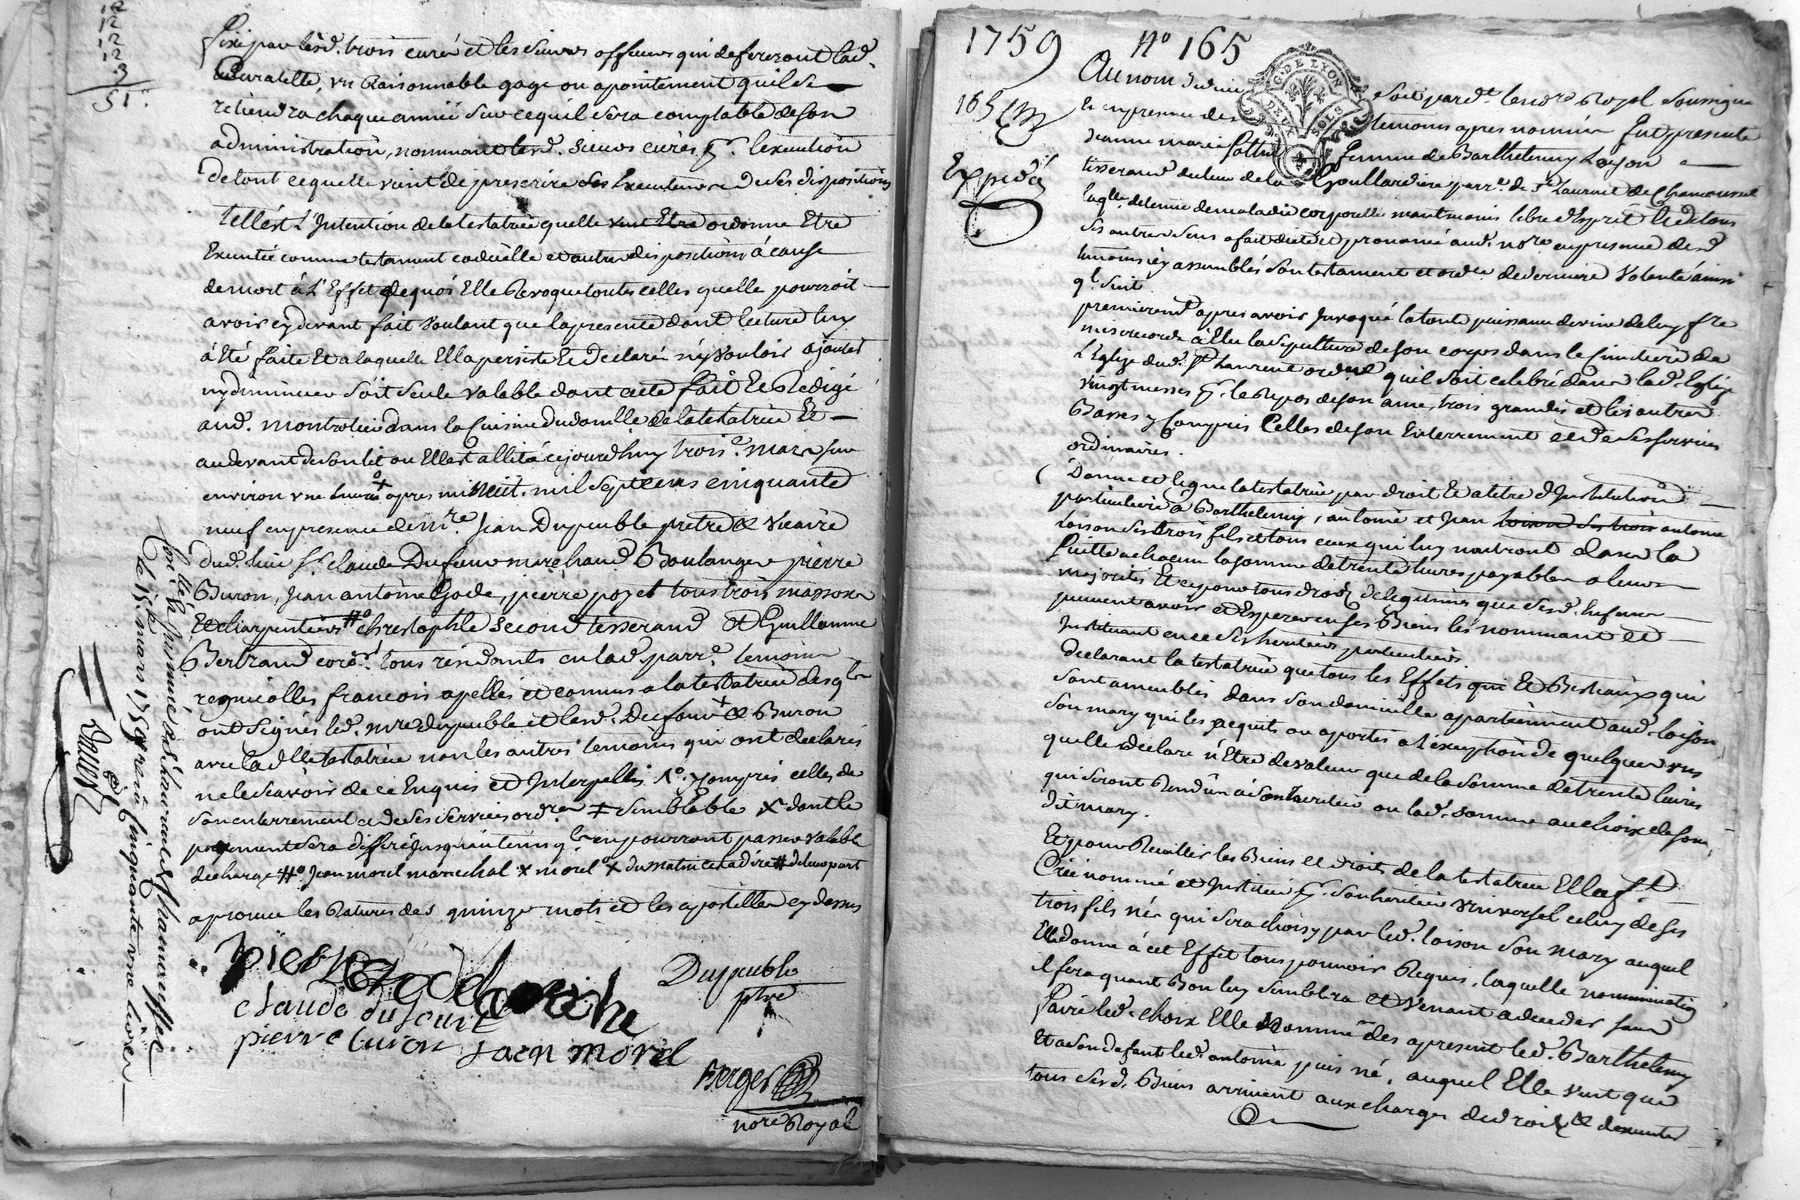 12
12
12
12
3
51"
fixé par lesd. trois curés et les sieurs officiers qui defereront lad.
Curatelle, un Raisonnable gage ou apointement quil se
retiendra chaque année sur cequil sera comptable de son
administration, nommant lesd. sieurs curés pr. lexecution
De tout cequelle vient de prescrire
tellest L'Intention de la testatrice quelle veut Etre ordonne Etre
Executée comme testament codicille et autre dispositions à cause
de mort à L'Effet dequoi Elle Revoque toutes celles quelle pourroit
avoir cy devant fait voulant que la presente dont lecture luy
à Eté faite Et a laquelle Ella persiste Et declaré n'y vouloir ajouter
ny diminuer soit seule valable dont acte fait et Redigé
aud. montrotier dans la Cuisine du domille de la testatrice Et
audevant de son lit ou Elle est allitée cejourdhuy trois e. mars sur
environ une heure apres minuit mil sept cens cinquante
neuf en presence de mre. Jean Dupeuble pretre & vicaire
dud. lieu sr. claude Dufour marchand Boulanger pierre
Buron, Jean antoine Gode, pierre poyet tous trois massons
Et charpentiers #o christophle second tisserand Et Guillaume
Bertrand tous residants en lad. parre. temoins
regnicolles francois apellés et connus a la testatrice desqls
ont signés led. mre dupeuble et lesd. Dufour & Buron
avec lad. testatrice non les autres temoins qui ont declarés
ne le scavoir de ce Enquis et Interpellés
son enterrement & de ses services ordres # semblable x dont le
payement sera differé jusquau tems qls en pourront passer valable
decharge #o Jean morel marechal x morel
aprouvé les Ratures des quinze mots et les apostilles cy dessus
Dupeuble
ptre
claude dufour
pierre buron
Jaen morel
Berger
nore Royal
Controlé a
le 15 mars 1759 reçu Cinquante une livres
1759 No 165
165
Expediée
G. DE LYON
DEUX SOLS
Au nom de dieu soit pardt. le nore Royal soussigné
Et en presence des temoins apres nommés fut presente
Jeanne marie femme de Barthelemy Loison
tisserand du lieu de la Goullardiere parre. de St. Laurent de Chamousset
laqlle. detenue de maladie corporelle neantmoins libre d'Esprit Et de tous
ses autres sens a fait dicté et prononcé aud. nore en presence desd.
temoins icy assemblés son testament et ordce de derniere volonté ainsi
qt. suit
premieremt. apres avoir Invoqué la toute puissance divine de luy fre
misericorde à Elu la sepulture de son corps dans le simetiere de
L'Eglise dud. St. Laurent ordonné quil soit celebré dans lad. Eglise
vingt messes pr. le Repos de son ame, trois grandes et les autres
Basses y Compris Celles de son Enterrement & de ses services
ordinaires.
Donne et legue la testatrice par droit Et a titre d'Institution
particuliere à Barthelemy, antoine et Jean Loison ses trois antoine
Loison ses trois fils et tous ceux qui luy naitront dans la
suitte a chacun la somme de trente livres payable a leurs
majorités Et ce pour tous droits de legitimes que sesd. Enfans
peuvent avoir et Esperer en ses Biens les nommant Et
Instituant en ce ses heritiers particuliers.
declarant la testatrice que tous les Effets qui Et Bestiaux qui
sont ameublés dans son domicille apartiennent aud. Loison
son mary qui les acquits ou aportés a l'exception de quelques uns
quelle declare n'Etre de valeur que de la somme de trente livres
qui seront Rendus a son heritier ou lad. somme au choix de son
dit mary.
Et pour Recuillir les Biens Et droits de la testatrice Elle a ft.
Créé nommé et Institué pr. son heritier universel celuy de ses
trois fils nés qui sera choisy par led. Loison son mary auquel
Elle donne à cet Effet tous pouvoirs Requis, laquelle nommination
il fera quant Bon luy semblera et venant a deceder sans
faire led. choix Elle Nomme des apresent led. Barthelemy
Et a son defaut led. antoine puis né, auquel Elle veut que
tous sesd. Biens arrivent aux charges de droits & d'executer